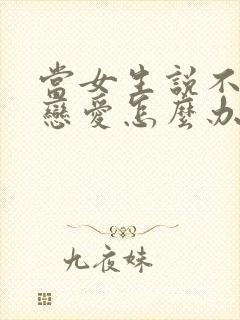 當女生說不
戀愛怎麼办
九夜妹